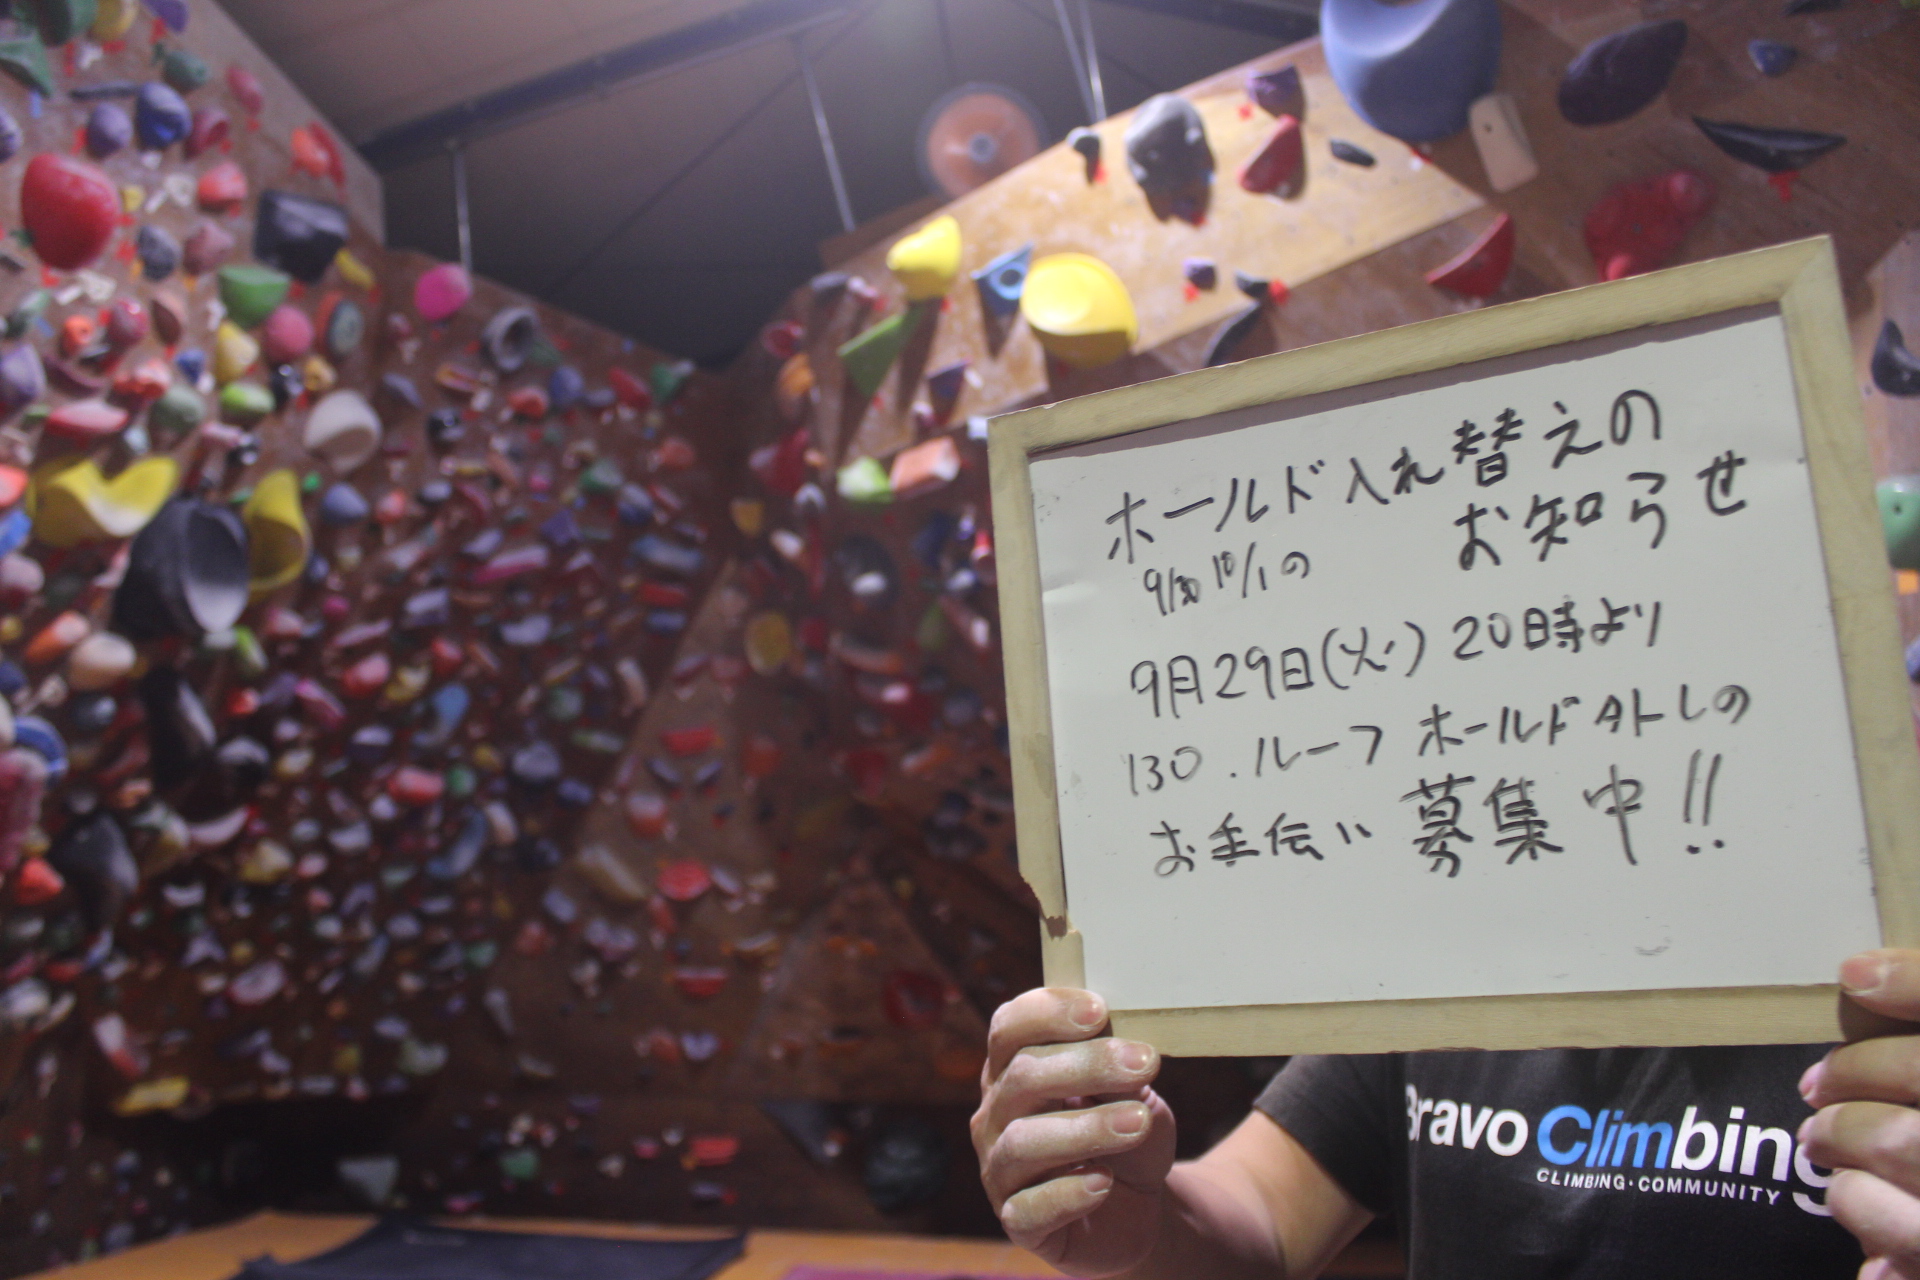 ホールド入れ替えの
お知らせ
9/30 10/1の
9月29日(火) 20時より
130.ルーフ ホールド外しの
お手伝い募集中!!
Bravo Climbing
CLIMBING・COMMUNITY